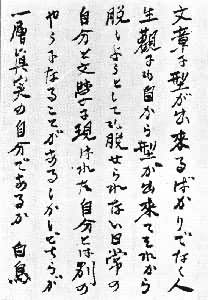 文章に型が出来るばかりでなく人
生觀にも自から型が出来てそれから
脱しようとしても脱せられない日常の
自分と文學に現はれた自分とは別の
やうになることがあるしかしどちらが
一層眞実の自分であるか 白鳥